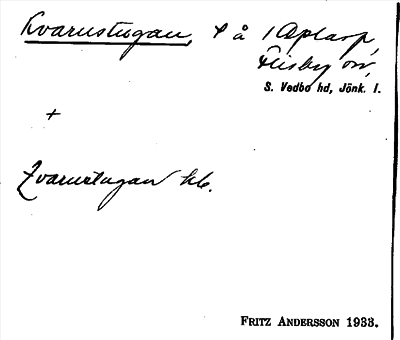 Kvarnstugan, t å 1 Aplarp,
Flisby sn,
S. Vedbo hd, Jönk. l.
+
Kvarnstugan hb.
FRITZ ANDERSSON 1933.